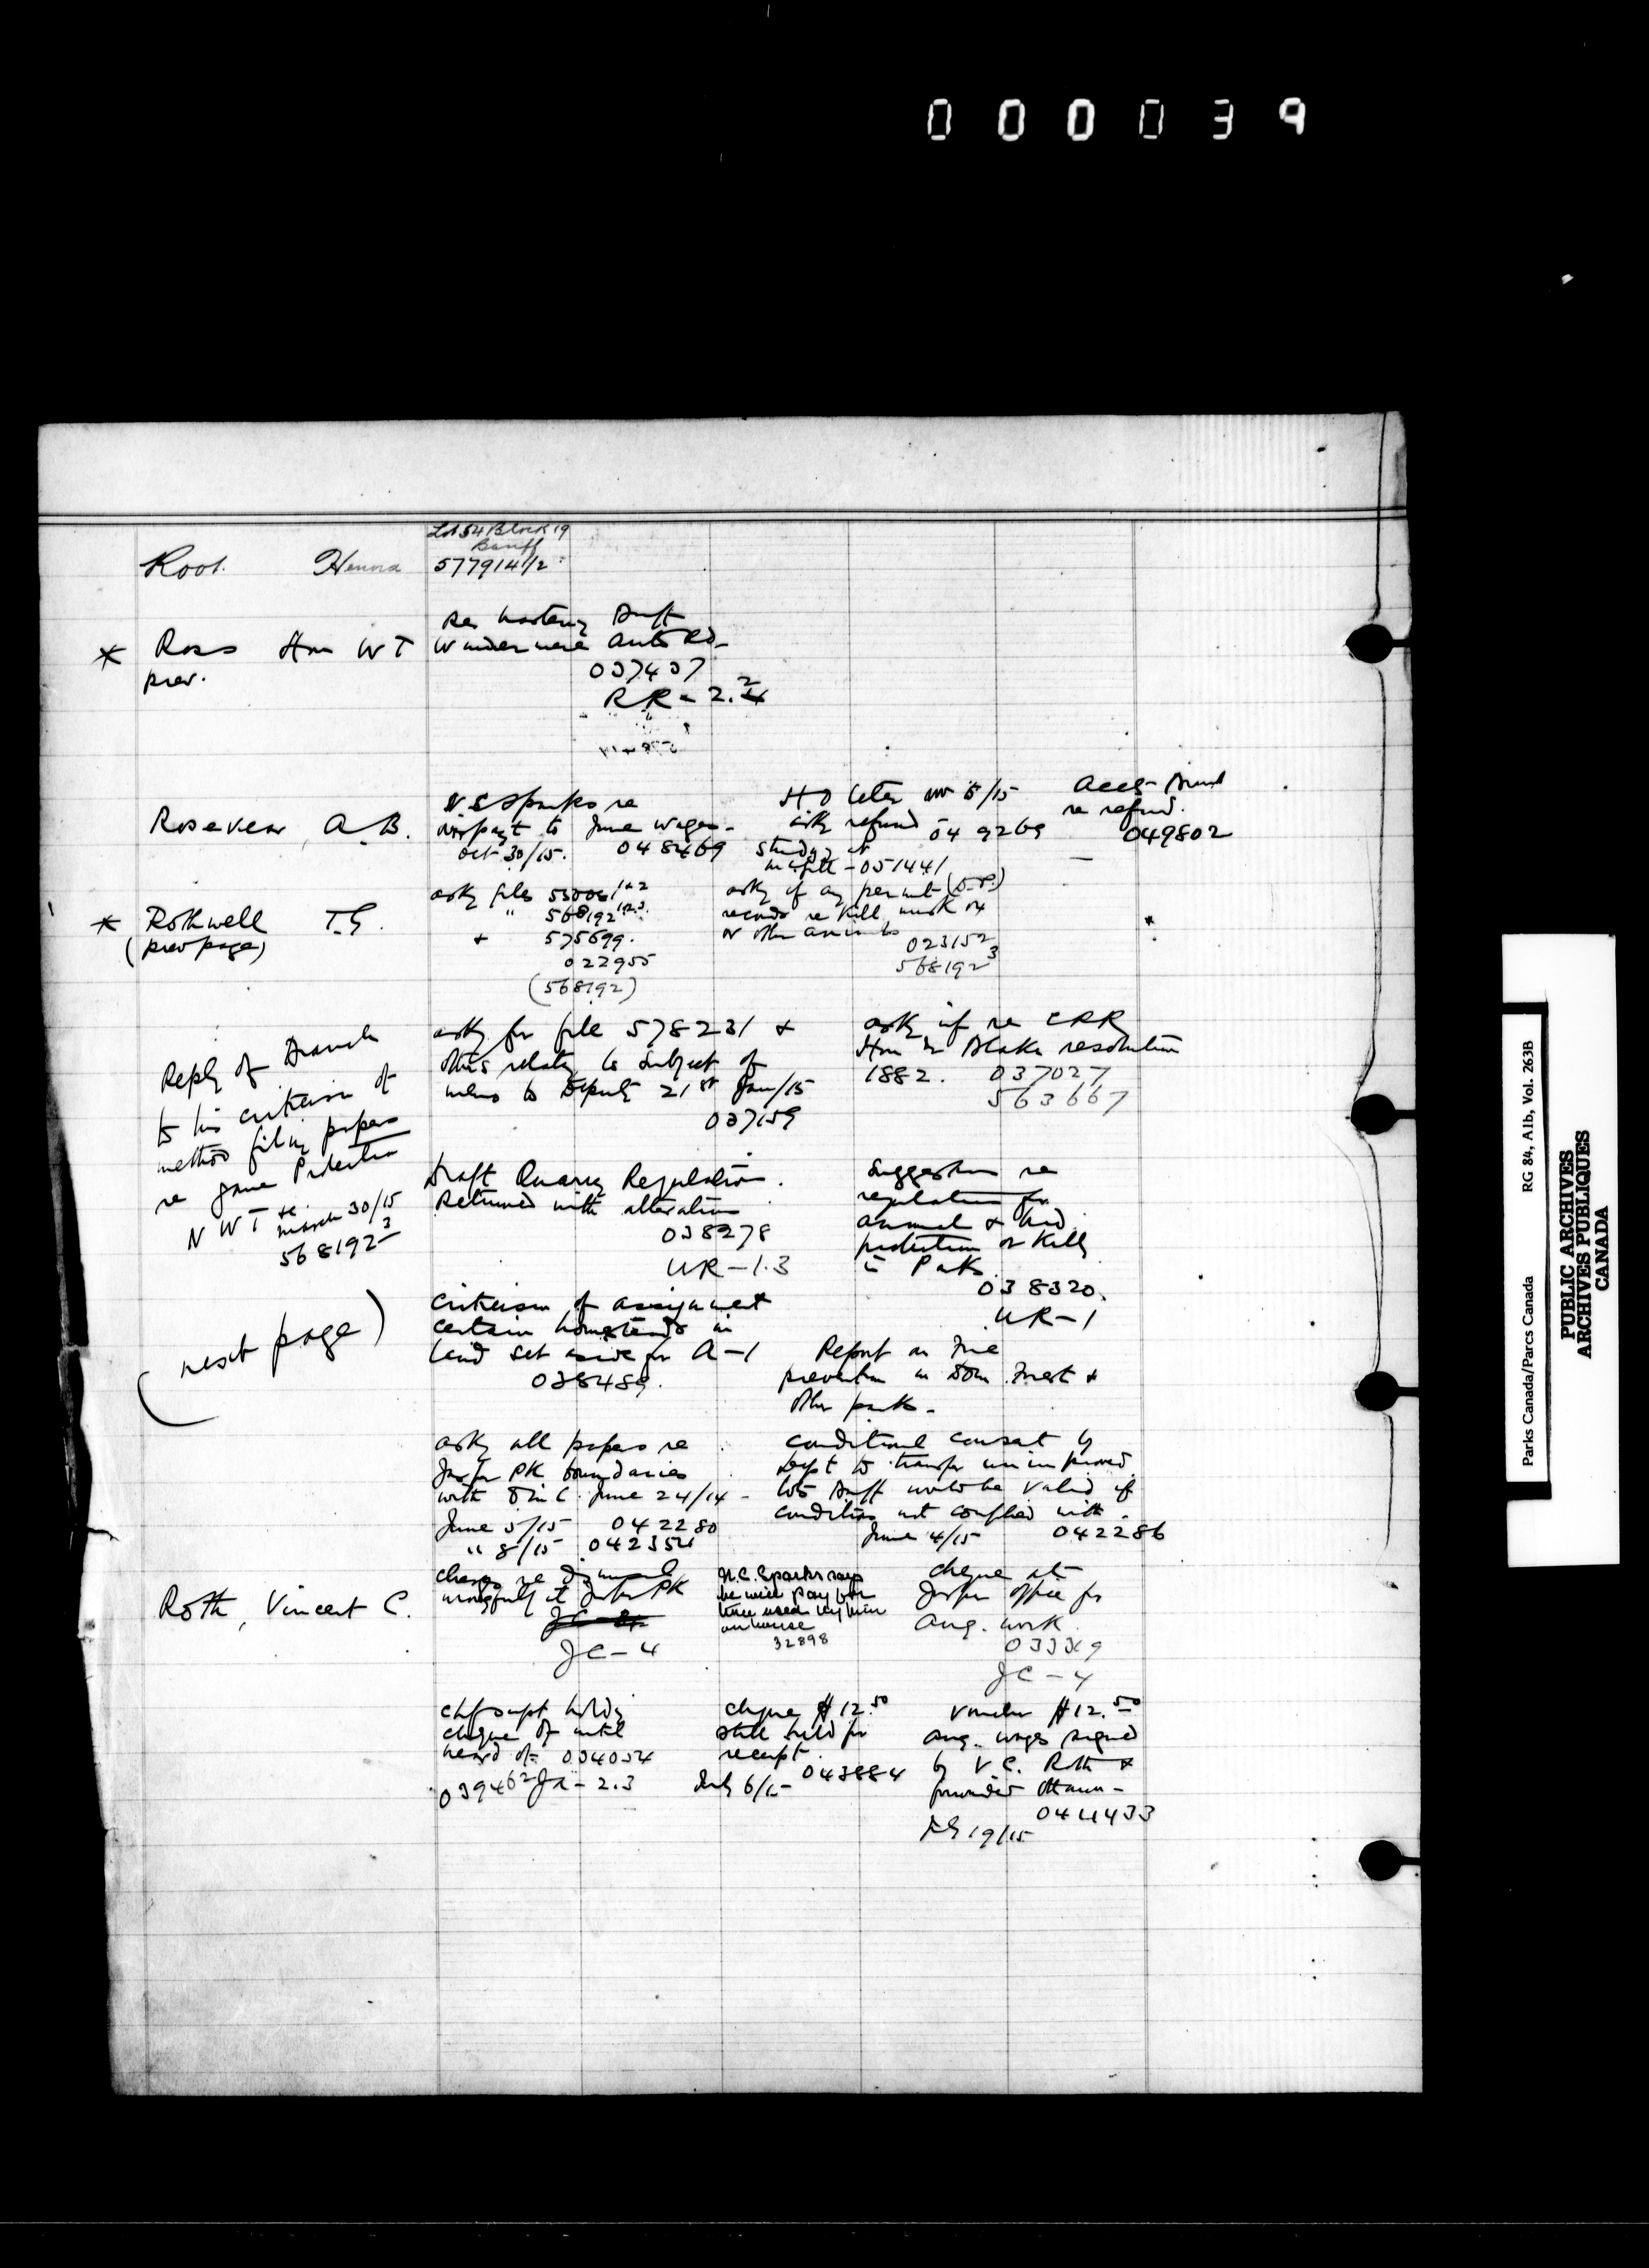 000039
Lot 34 Block 19
Banff
Root. Henna 577914 1/2
Re hastening Banff
* Ross Hon W T Windermere Auto Rd-
prev. 037437
RR - 2.2
N C Sparks re
Rosevear, A B. June wages-
Oct 30/15. 048469
H O letter Nov 8/15
asks refund 049269
studying at
McGill - 051441
re refund.
049802
* Rothwell T.G.
(prev page)
asks files
" 568192 1.2.3.
+ 575699.
022955
(568192)
asks if any permit
records re kill musk ox
or other animals
023152
568192 3
Reply of Branch
to his criticism of
method filing papers
re game Protection
N W T &c
March 30/15
568192 3
(next page)
asks for file 578231 +
others relating to subject of
memo to Deputy 21st Jan/15
037159
asks if re CPR
Hon Blake resolution
1882. 037027
563667
Draft Quarry Regulation.
Returned with alterations
038278
UR-1.3
Suggestions re
regulations for
animal & bird
protection or killing
in Parks.
038320.
UR-1
Criticism of assignment
certain homesteads in
land set aside for A-1
038489.
Report on Fire
prevention in Dom. Forest +
other parks-
asks all papers re
Jasper PK boundaries
with O in C. June 24/14-
June 5/15 042280
" 8/15 042354
Conditional consent by
Dept to transfer unimproved
lots Banff would be valid if
conditions not complied with.
June 4/15 042286
Roth, Vincent C.
charges re dismissal
wrongfully at Jasper PK
JC-4
N.C. Sparks says
he will pay for
time used by him
on house
32898
Cheque at
Jasper office for
Aug. work
JC-4
Chf supt holding
cheque of until
heard of- 034034
039462 JR-2.3
cheque $12.50
still held for
receipt.
July 6/15 043884
Voucher $12.50
Aug. wages signed
by V C. Roth +
forwarded Ottawa-
044433
19/15
Parks Canada/Parcs Canada RG 84, A1b, Vol. 263B
PUBLIC ARCHIVES
ARCHIVES PUBLIQUES
CANADA